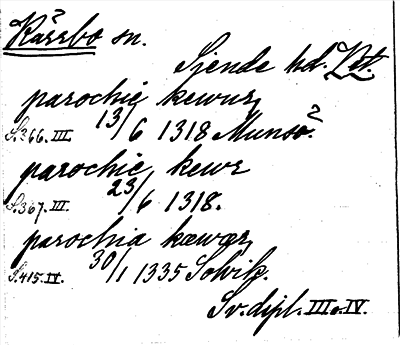 Kårsbo sn.
Sjende hd. Vst.
parochie kewur
S.366. III. 13/6 1318 Munsö?
parochie kewr
S.367. III. 23/6 1318.
parochia kæwær
S.415. IV. 30/1 1335 Solvik.
Sv. dipl. III o. IV.